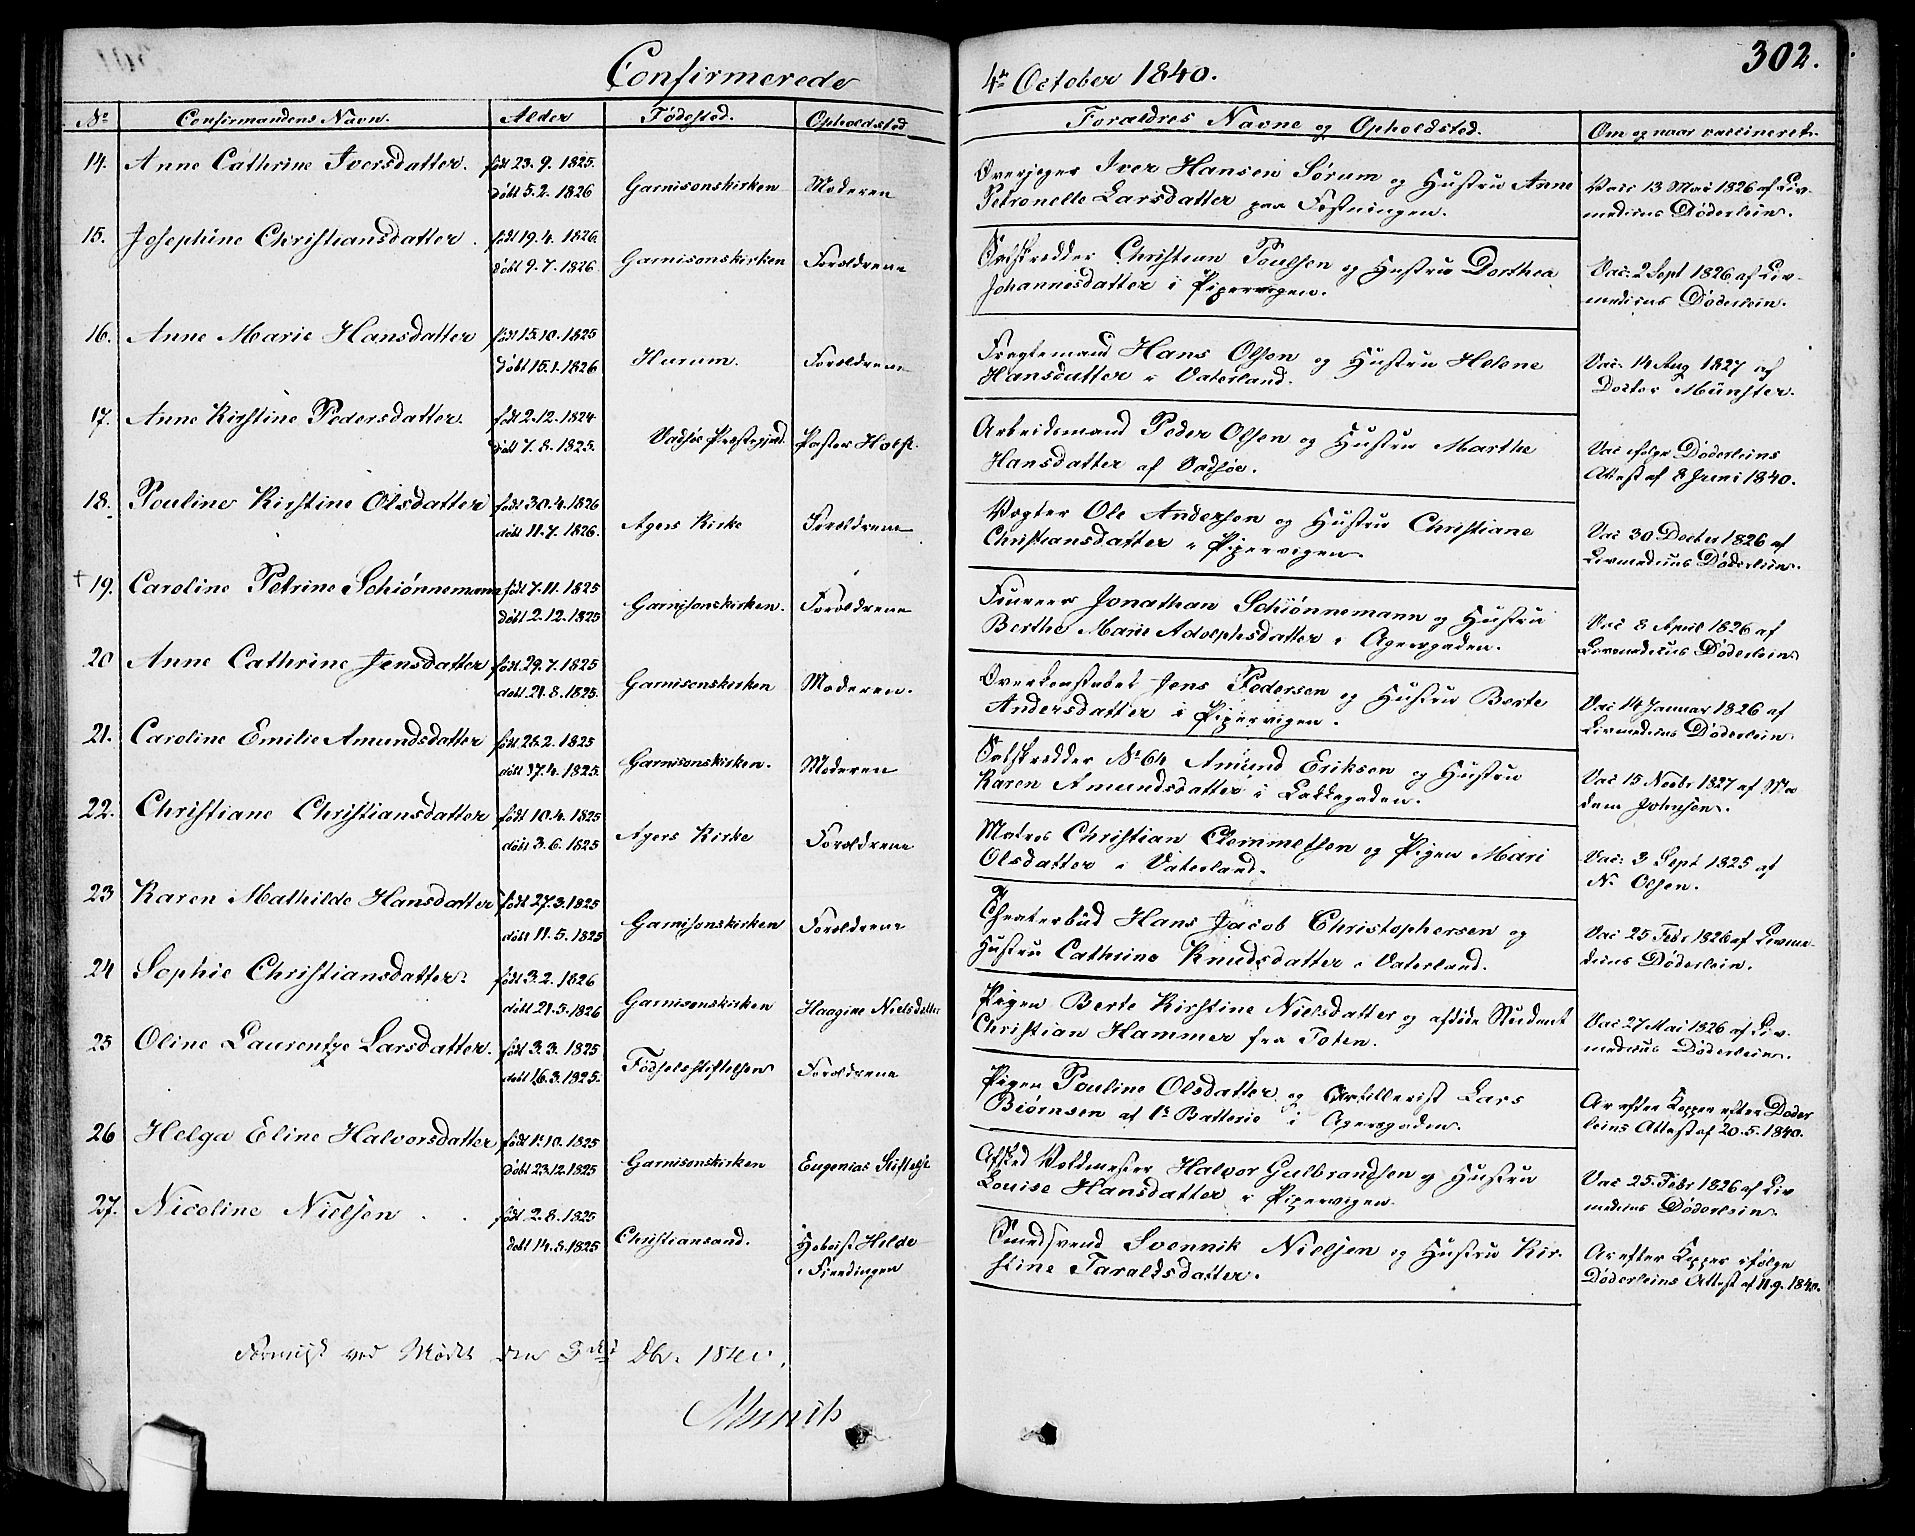 302.
Confirmerede 4de October 1840.
No Confirmandens Navn. Alder Fødested. Opholdsted Forældres Navne og Opholdsted. Om og naar vaccineret.
14. Anne Cathrine Iversdatter. født 23. 9. 1825. døbt 5. 2. 1826 Garnisonskirken Moderen
Overjeger Iver Hansen Sørum og Hustru Anne
Petronelle Larsdatter paa Fæstningen.
Vac 13 Mai 1826 af Liv-
medicus Døderlein.
15. Josephine Christiansdatter. født 19. 4. 1826. døbt 9. 7. 1826 Garnisonskirken Forældrene
Christian Poulsen og Hustru Dorthea
Johannisdatter i Pipervigen.
Vac. 2 Sept 1826 af Liv-
medicus Døderlein.
16. Anne Marie Hansdatter født 15. 10. 1825 døbt 15. 1. 1826 Hurum. Forældrene
Fragtemand Hans Olsen og Hustru Helene
Hansdatter i Vaterland.
Vac. 14 Aug 1827 af
Doctor Münster.
17. Anne Kirstine Pedersdatter. født 2. 12. 1824 døbt 7. 8. 1825. Vadsøe Præstegjeld. Pastor Holst.
Arbeidsmand Peder Olsen og Hustru Marthe
Hansdatter af Vadsøe.
Vac ifølge Døderleins
Attest af 8 Juni 1840.
18. Pouline Kirstine Olsdatter født 30. 4. 1826 døbt 11. 7. 1826. Agers Kirke Forældrene
Vægter Ole Andersen og Hustru Christiane
Christiansdatter i Pipervigen.
Vac 30 Decbr 1826 af
Livmedicus Døderlein.
+ 19. Caroline Petrine Schiønnemann født 7. 11. 1825 døbt 2. 12. 1825 Garnisonskirken. Forældrene
Foureer Jonathan Schiønnemann og Hustru
Berthe Marie Adolphsdatter i Agersgaden.
Vac 8 April 1826 af
Livmedicus Døderlein
20 Anne Cathrine Jensdatter født 29. 7. 1825 døbt 21. 8. 1825. Garnisonskirken Moderen.
Overkonstabel Jens Pedersen og Hustru Berte
Andersdatter i Pipervigen.
Vac 14 Januar 1826 af
Livmedicus Døderlein.
21. Caroline Emilie Amundsdatter født 26. 2. 1825 døbt 17. 4. 1825. Garnisonskirken. Moderen
No 64 Amund Eriksen og Hustru
Karen Amundsdatter i Lakkegaden.
Vac 15 Novbr 1827 af Ma
dam Johnsen.
22. Christiane Christiansdatter født 10. 4. 1825 døbt 3. 6. 1825 Agers Kirke Forældrene
Matros Christian Clemmetsen og Pigen Mari
Olsdatter i Vaterland.
Vac: 3 Sept 1825 af
N. Olsen.
23 Karen Mathilde Hansdatter født 27. 3. 1825 døbt 11. 5. 1825 Garnisonskirken Forældrene
Theaterbud Hans Jacob Christophersen og
Hustru Cathrine Knudsdatter i Vaterland.
Vac 25 Febr 1826 af Livme-
dicus Døderlein.
24 Sophie Christiansdatter. født 3. 2. 1826 døbt 21. 5. 1826 Garnisonskirken Haagine Nielsdatter
Pigen Berte Kirstine Nielsdatter og afdøde Student
Christian Hammer fra Toten.
Vac 27 Mai 1826 af Liv-
medicus Døderlein.
25 Oline Laurentze Larsdatter. født 3. 3. 1825 døbt 16. 3. 1825. Fødselsstiftelsen Forældrene
Pigen Pouline Olsdatter og Artillerist Lars
Biørnsen af 1ste Batterie i Agersgaden.
Ar efter Kopper efter Døder
leins Attest af 20. 5. 1840.
26 Helga Eline Halvorsdatter født 1. 10. 1825 døbt 23. 12. 1825 Garnisonskirken Eugenias Stiftelse
Afsked Voldmester Halvor Gulbrandsen og Hustru
Louise Hansdatter i Pipervigen.
Vac 25. Febr 1826 af Liv
medicus Døderlein.
27. Nicoline Nielsen . . født 2. 8. 1825 døbt 14. 8. 1825 Christiansand. Hoboist Hilde
i Fierdingen
Smedsvend Svennik Nielsen og Hustru Kir-
stine Taraldsdatter.
Ar efter Kopper ifølge
Døderleins Attest af 11. 9. 1840.
ved Mødet den 3die Dbr. 1840.
Munch